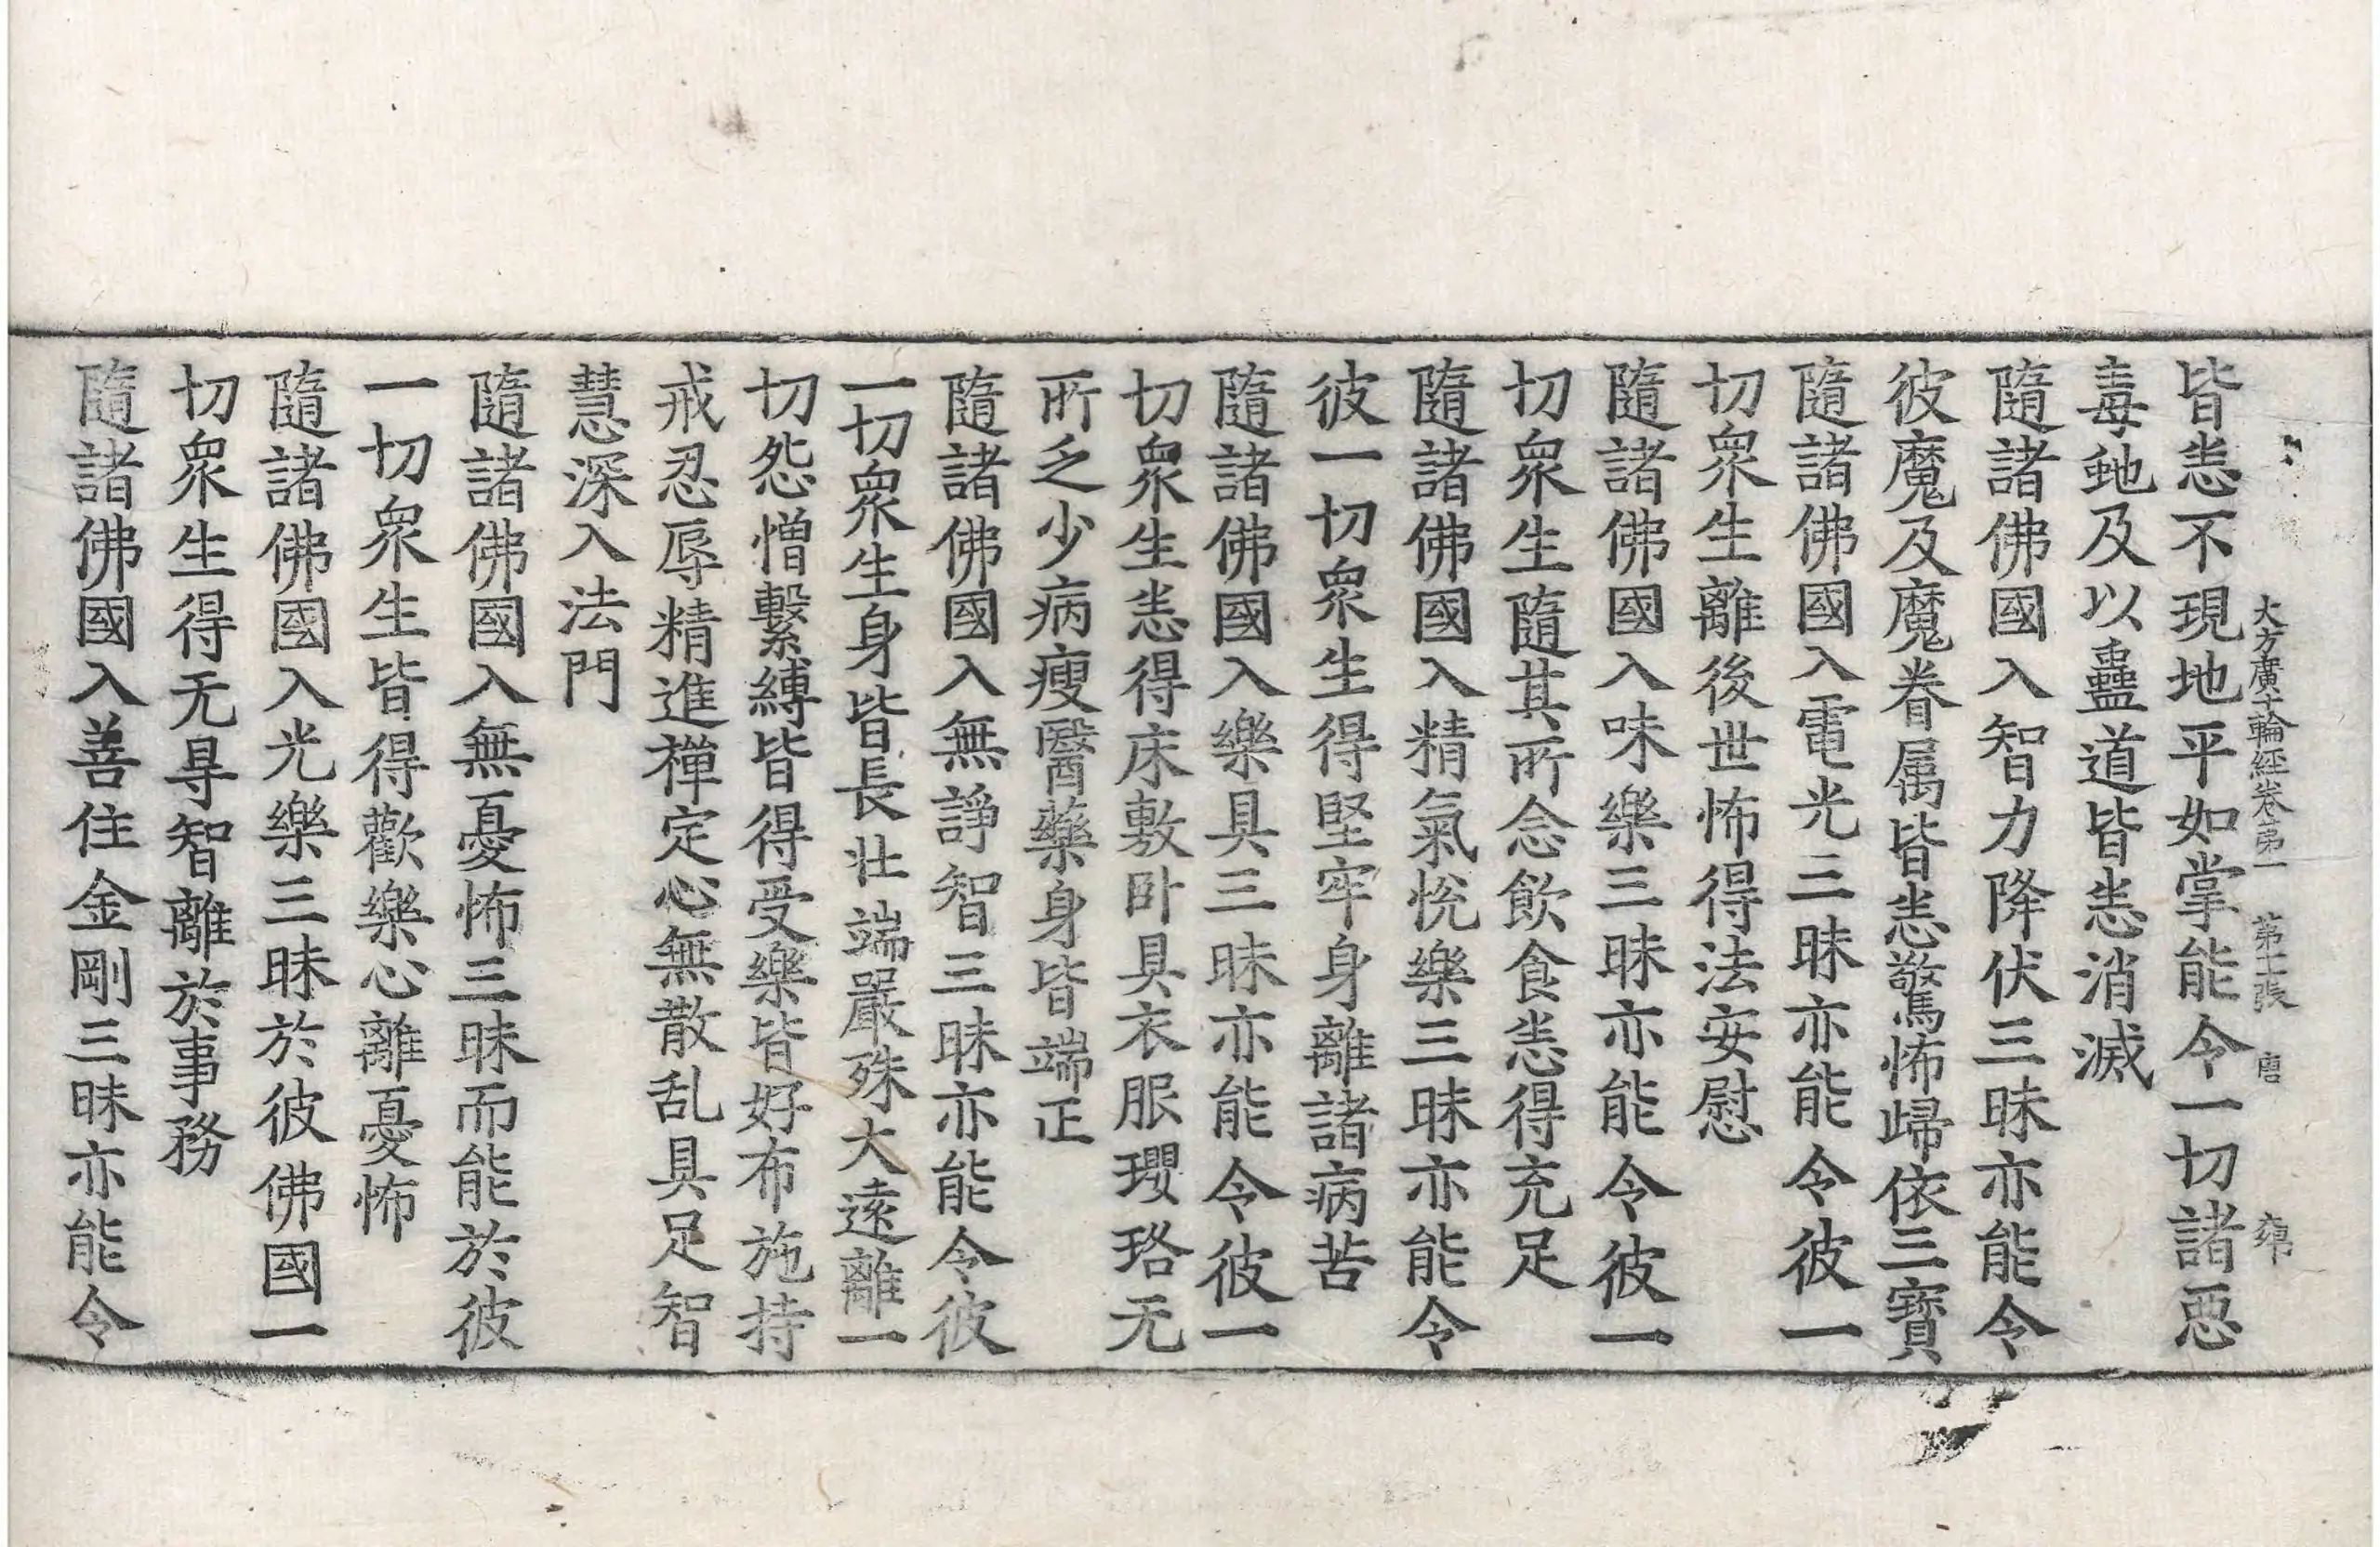 大方廣十輪經卷第一 第十張 唐
皆恙不現地平如掌能令一切諸惡
毒虵及以蠱道皆恙消滅
隨諸佛國入智力降伏三昧亦能令
彼魔及魔眷属皆恙驚怖歸依三寶
隨諸佛國入電光三昧亦能令彼一
切衆生離後世怖得法安慰
隨諸佛國入味樂三昧亦能令彼一
切衆生隨其所念飲食恙得充足
隨諸佛國入精氣悅樂三昧亦能令
彼一切衆生得堅牢身離諸病苦
隨諸佛國入樂具三昧亦能令彼一
切衆生恙得床敷卧具衣服瓔珞无
所乏少病瘦醫藥身皆端正
隨諸佛國入無諍智三昧亦能令彼
一切衆生身皆長壮端嚴殊大遠離一
切怨憎繫縛皆得受樂皆好布施持
戒忍辱精進禪定心無散乱具足智
慧深入法門
隨諸佛國入無憂怖三昧而能於彼
一切衆生皆得歡樂心離憂怖
隨諸佛國入光樂三昧於彼佛國一
切衆生得无㝵智離於事務
隨諸佛國入善住金剛三昧亦能令